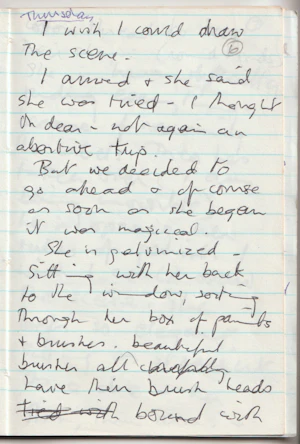 Thursday
I wish I could draw
the scene.
6
I arrived & she said
she was tired - I thought
Oh dear - not again an
abortive trip.
But we decided to
go ahead & of course
as soon as she began
it was magical.
She is galvanized -
sitting with her back
to the window, sorting
through her box of paints
& brushes. beautiful
brushes all carefully
have their brush heads
tied with bound with